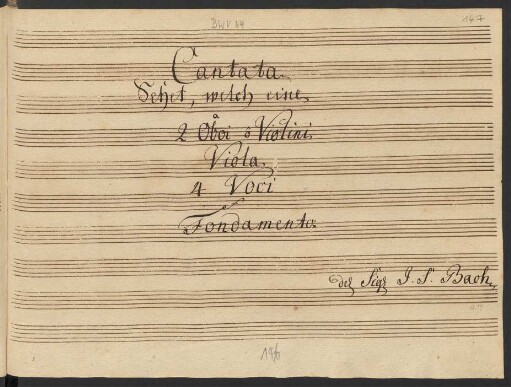 BWV 64
147
Cantata.
Sehet, welch eine
a
2 Oboi ô Violini.
Viola.
4 Voci
e
Fondamento.
del Sigr J. S. Bach.
196